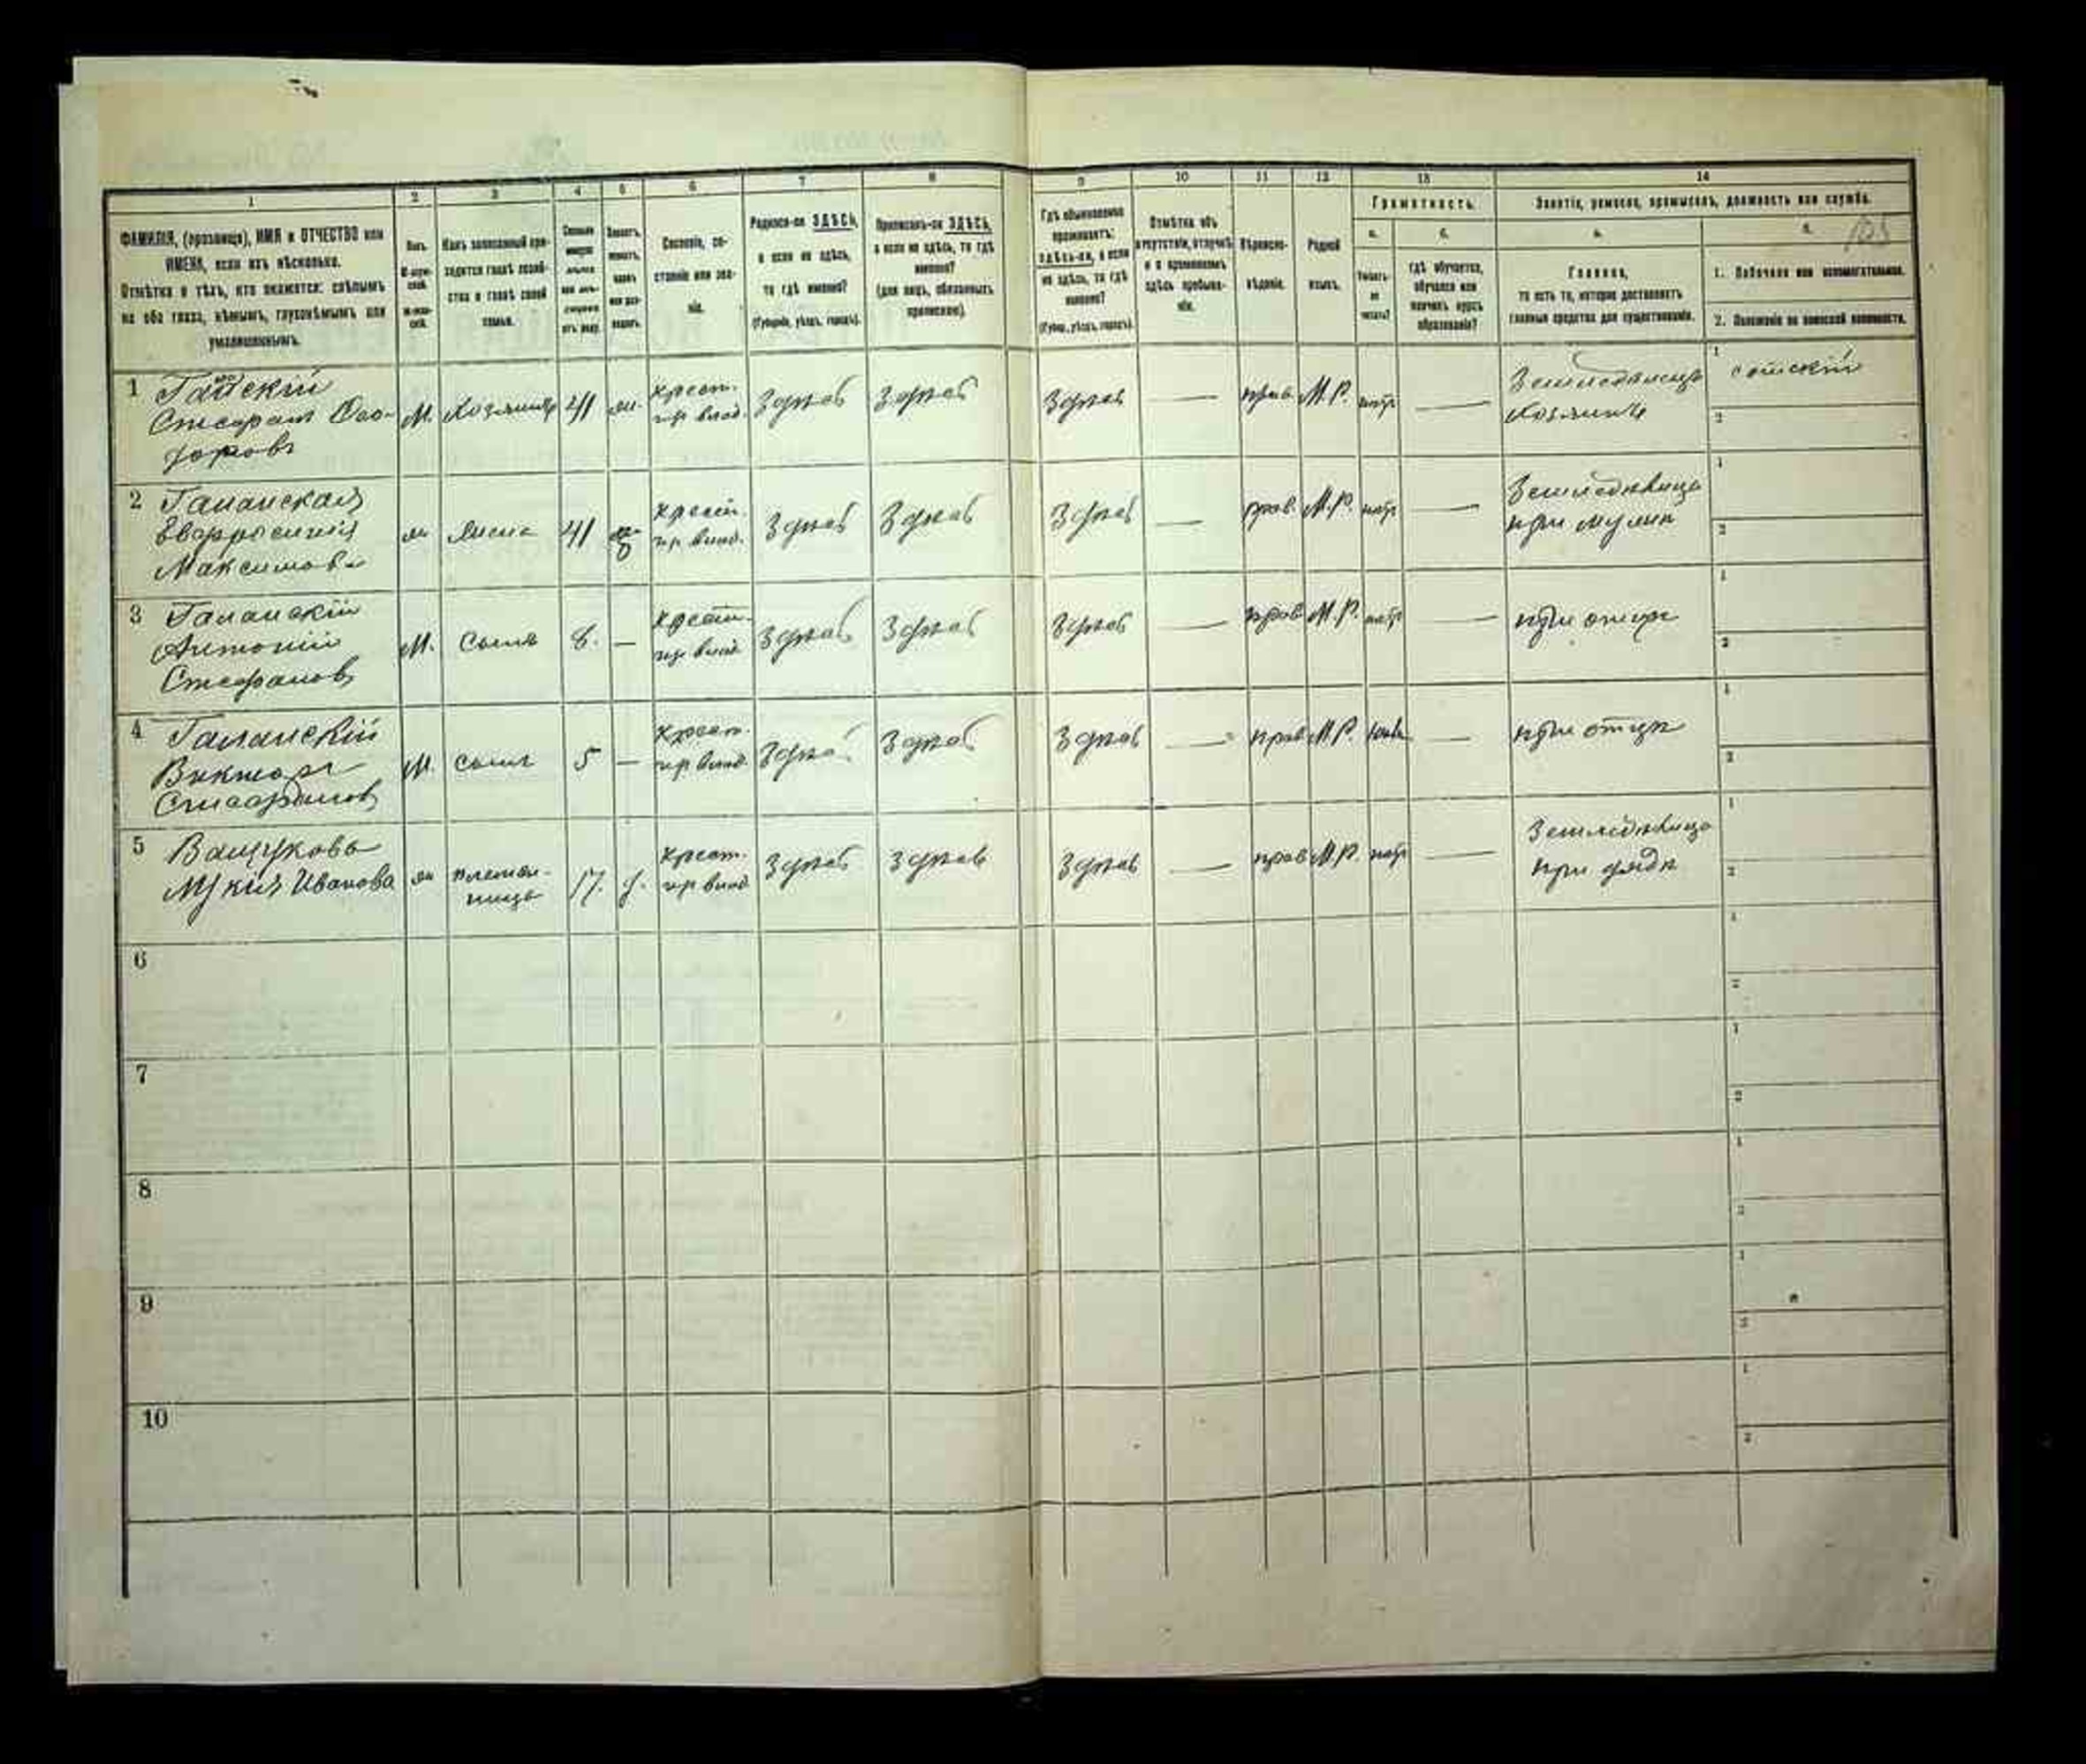 1
2
3
4
5
6
7
8
9
10
11
12
13
14
Грамотность.
Занятіе, ремесло, промыселъ, должность или служба.
ФАМИЛІЯ, (прозвище), ИМЯ и ОТЧЕСТВО или
ИМЕНА, если ихъ нѣсколько.
Отмѣтка о тѣхъ, кто окажется: слѣпымъ
на оба глаза, нѣмымъ, глухонѣмымъ или
умалишеннымъ.
Полъ.
Какъ записанный при-
ходится главѣ хозяй-
ства и главѣ своей
семьи.
Сословіе, со-
стояніе или зва-
ніе.
Родился-ли ЗДѢСЬ,
а если не здѣсь,
то гдѣ именно?
(Губернія, уѣздъ, городъ).
Приписанъ-ли ЗДѢСЬ,
а если не здѣсь, то гдѣ
именно?
(для лицъ, обязанныхъ
припискою).
Гдѣ обыкновенно
проживаетъ:
здѣсь-ли, а если
не здѣсь, то гдѣ
именно?
(Губер., уѣздъ, городъ).
Отмѣтка объ
отсутствіи, отлучкѣ
и о временномъ
здѣсь пребыва-
ніи.
Вѣроиспо-
вѣданіе.
Родной
языкъ.
а.
Умѣетъ-
ли
читать?
б.
Гдѣ обучается,
обучался или
кончилъ курсъ
образованія?
а.
Главное,
то есть то, которое доставляетъ
главныя средства для существованія.
б.
105
1. Побочное или вспомогательное.
2. Положеніе по воинской повинности.
1
Стефанъ Өео-
доровъ
М. Хозяинъ 41 крест. Здѣсь Здѣсь Здѣсь — прав. М.Р. нѣтъ —
хозяинъ
1
2
2 Галанская
Евфросинія
Максимова
жена 41 крест. Здѣсь Здѣсь Здѣсь — прав. М.Р. нѣтъ —
Земледѣлица
при мужѣ
1
2
3 Галанскій
Антоній
Стефановъ
М. Сынъ 8. — крест. Здѣсь Здѣсь Здѣсь — прав. М.Р. нѣтъ —
при отцѣ
1
2
4 Галанскій
Викторъ
Стефановъ
М. Сынъ 5 — крест. Здѣсь Здѣсь Здѣсь — прав. М.Р. —
при отцѣ
1
2
5 Ващукова
Иванова
племян-
ница
17. крест. Здѣсь Здѣсь Здѣсь — прав. М.Р. нѣтъ —
Земледѣлица
при дядѣ
1
2
6
1
2
7
1
2
8
1
2
9
1
2
10
1
2